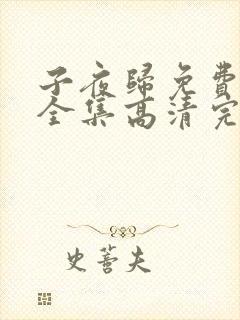 子夜歸免費
全集高清完
史蒼夫